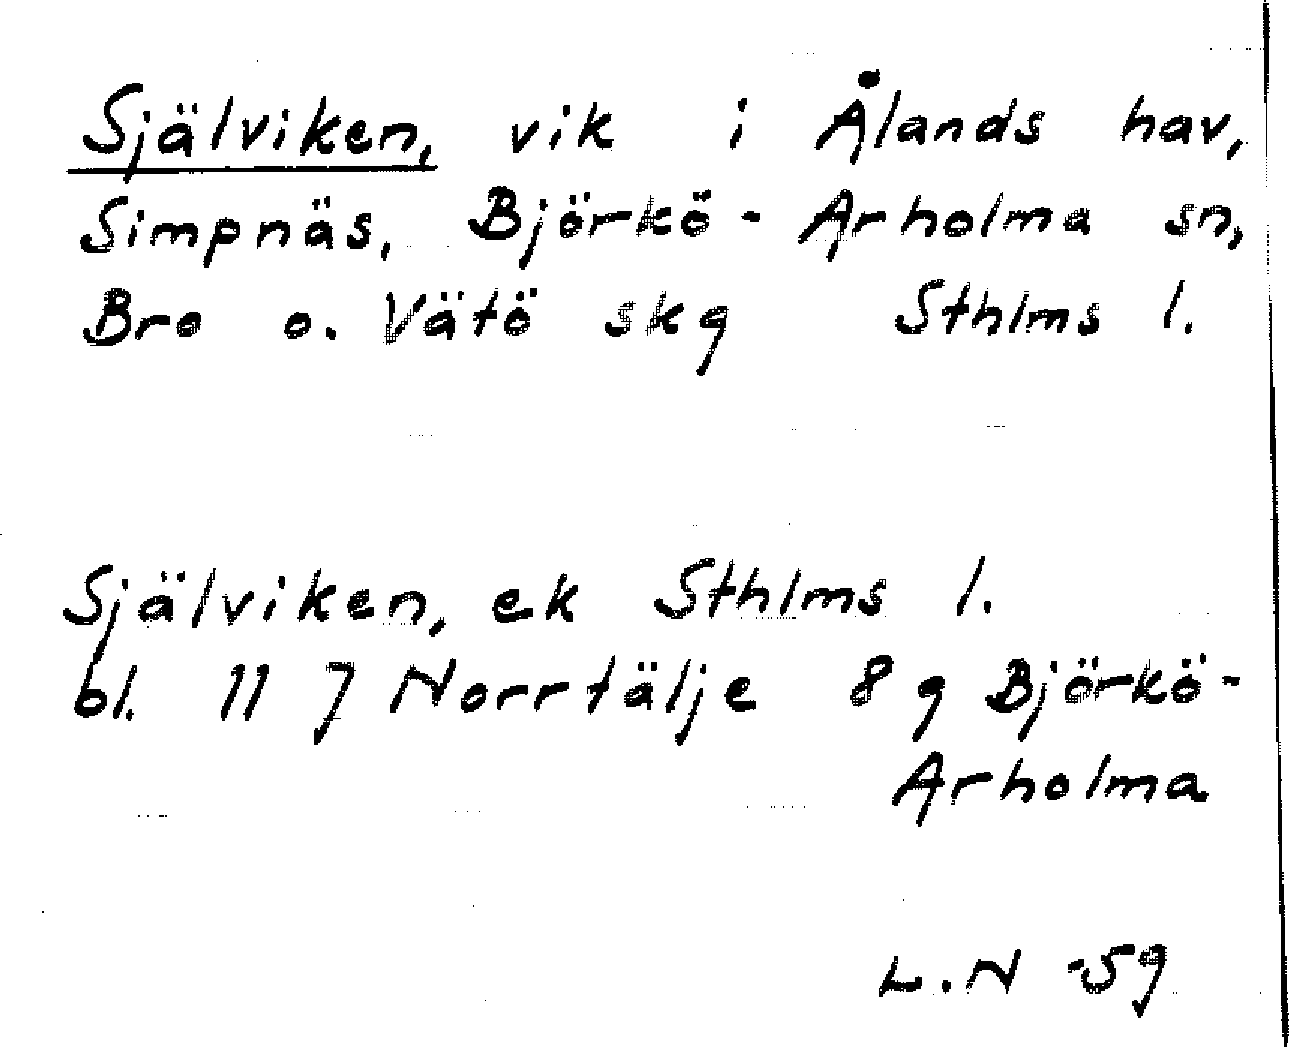 Självíken, vik i Ålands hav,
Simpnäs, Björkö - Arholma sn,
Bro o. Vätö skg Sthlms l.
Själviken, ek Sthlms l.
bl. 11 7 Norrtälje 8 9 Björkö-
Arholma
L.N -59